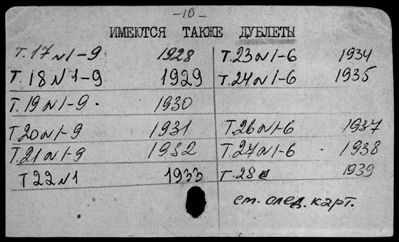 -10-
ИМЕЮТСЯ ТАКЖЕ ДУБЛЕТЫ
Т.17 N1-9 1928 Т.23 N1-6 1934
Т.18 N1-9 1929 Т.24 N1-6 1935
Т.19 N1-9. 1930
Т.20 N1-9 1931 Т.26 N1-6 1937
Т.21 N1-9 1932 Т.27 N1-6 1938
Т 22 N1 1933 Т.28 1939
см. след. карт.